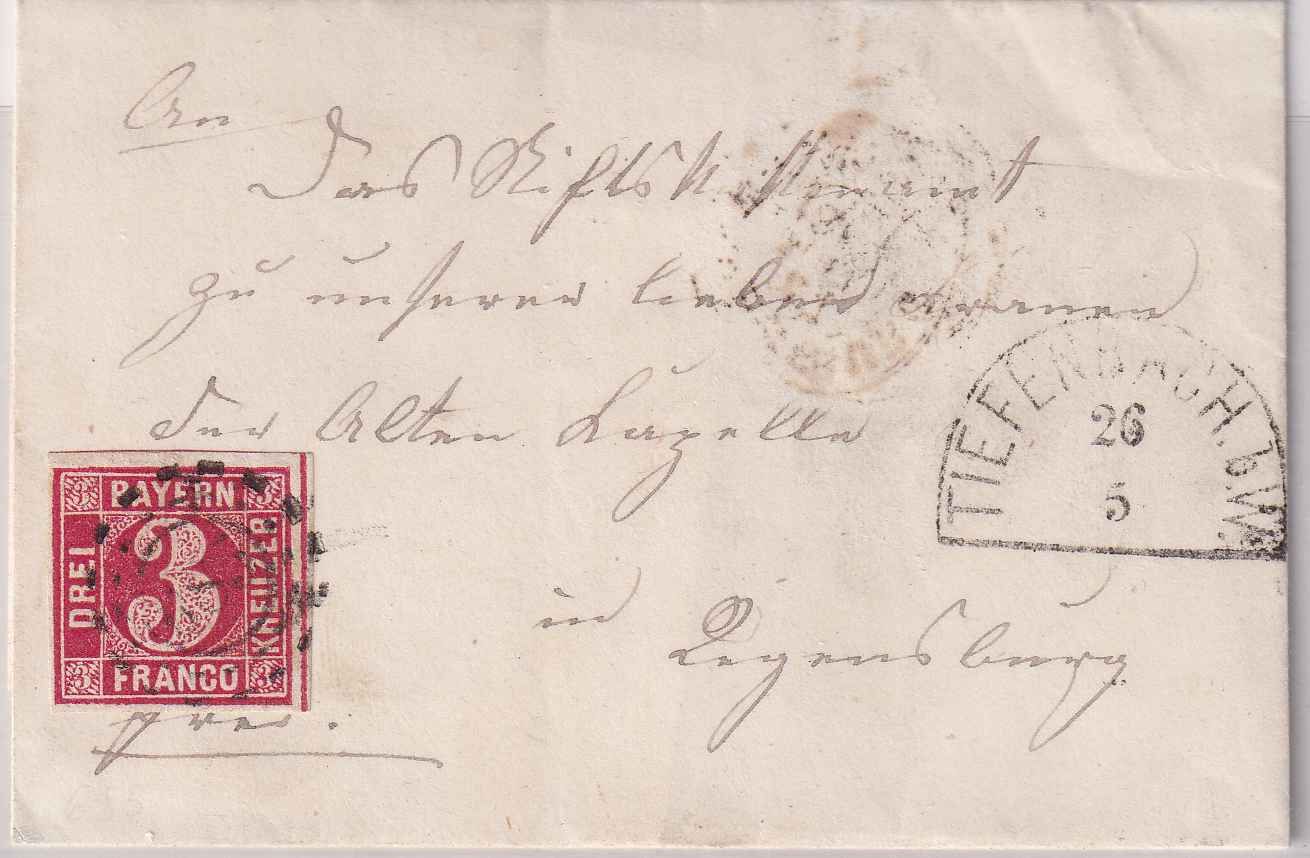 An
Das Stiftskastenamt
zu unserer lieben Frauen
der Alten Kapelle
in
Regensburg
frei.
BAYERN
DREI
3
KREUZER
FRANCO
3
3
3
3
TIEFENBACH. b/W.
26
5